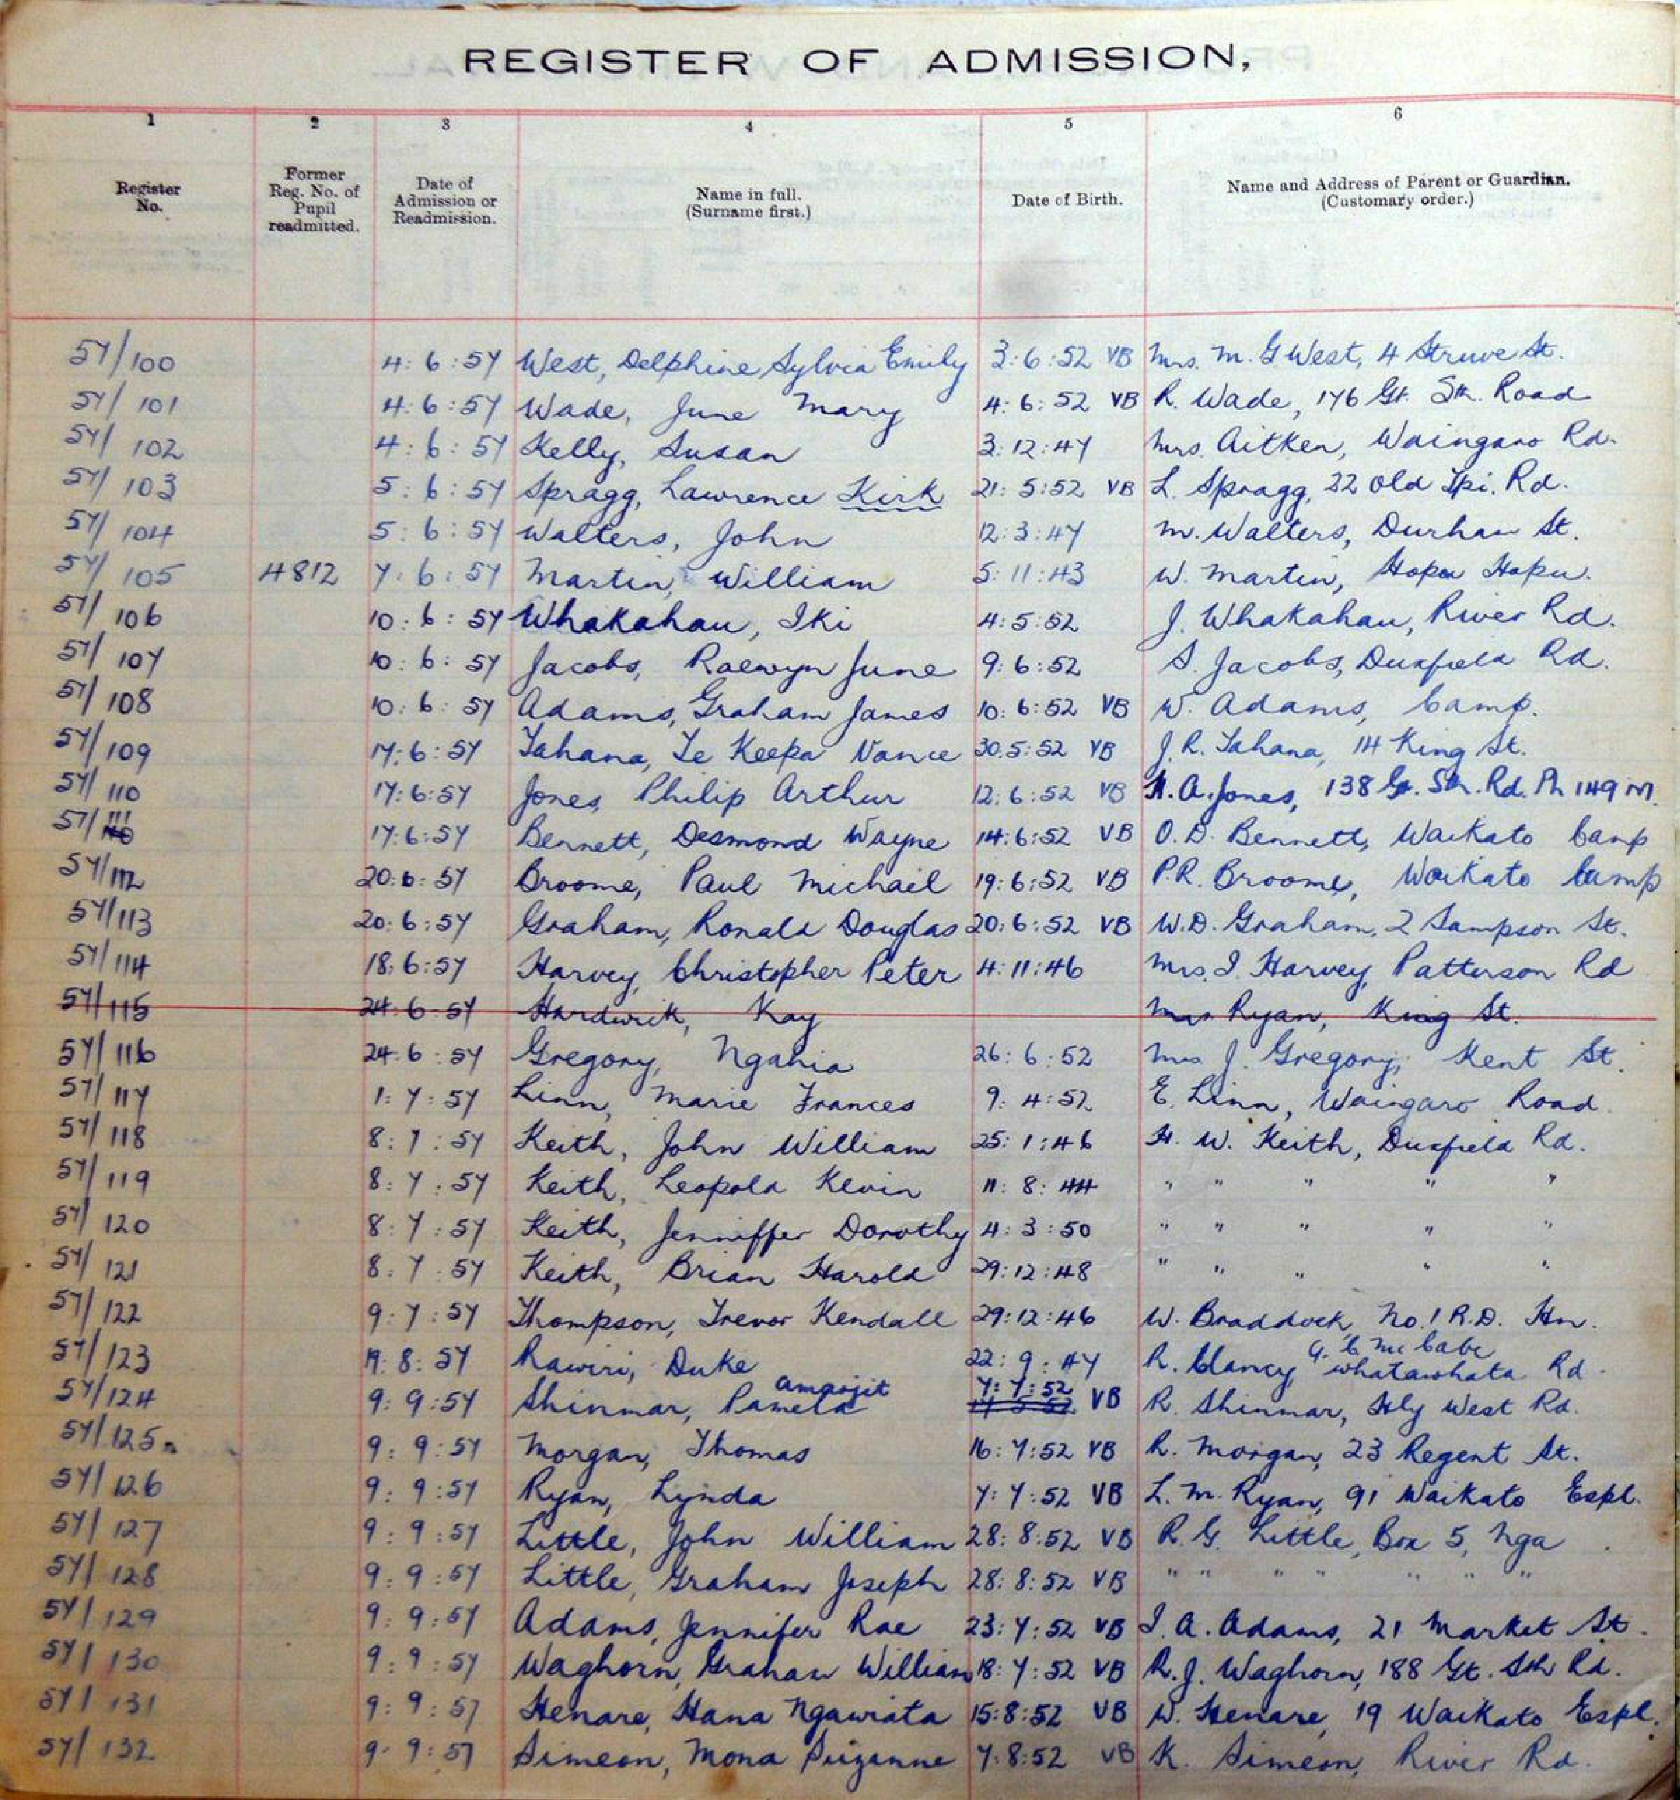 REGISTER OF ADMISSION,
1 2 3 4 5 6
Register No. Former Reg. No. of Pupil readmitted. Date of Admission or Readmission. Name in full. (Surname first.) Date of Birth. Name and Address of Parent or Guardian. (Customary order.)
57/100 4:6:57 West, Delphine Sylvia Emily 3:6:52 VB Mrs. M. G West, 4 Struve St.
57/101 4:6:57 Wade, June Mary 4:6:52 VB R. Wade, 176 Gt. Sth. Road
57/102 4:6:57 Kelly, Susan 3:12:47 Mrs. Aitken, Waingaro Rd.
57/103 5:6:57 Spragg, Lawrence Kirk 21:5:52 VB L. Spragg, 22 Old Tpi. Rd.
57/104 5:6:57 Walters, John 12:3:47 M. Walters, Durham St.
57/105 4812 7:6:57 Martin, William 5:11:43 W. Martin, Hopu Hopu.
57/106 10:6:57 Whakahau, Iki 4:5:52 J. Whakahau, River Rd.
57/107 10:6:57 Jacobs, Raewyn June 9:6:52 S. Jacobs, Duxfield Rd.
57/108 10:6:57 Adams, Graham James 10:6:52 VB W. Adams, Camp.
57/109 17:6:57 Tahana, Te Keepa Vance 30.5:52 VB J. R. Tahana, 14 King St.
57/110 17:6:57 Jones, Philip Arthur 12:6:52 VB A. A. Jones, 138 Gt. Sth. Rd. Ph 149 M.
57/111 17:6:57 Bennett, Desmond Wayne 14:6:52 VB O. D. Bennett, Waikato Camp
57/112 20:6:57 Broome, Paul Michail 19:6:52 VB P.R. Broome, Waikato Camp
57/113 20:6:57 Graham, Ronald Douglas 20:6:52 VB W.D. Graham, 2 Sampson St.
57/114 18:6:57 Harvey, Christopher Peter 4:11:46 Mrs. I. Harvey, Patterson Rd
57/115 24:6:57 Hardwick, Kay Mrs Ryan, King St.
57/116 24:6:57 Gregory, Ngahia 26:6:52 Mrs J. Gregory, Kent St.
57/117 1:7:57 Linn, Marie Frances 9:4:52 E. Linn, Waingaro Road.
57/118 8:7:57 Keith, John William 25:1:46 H. W. Keith, Duxfield Rd.
57/119 8:7:57 Keith, Leopold Kevin 11:8:44 " " " " "
57/120 8:7:57 Keith, Jenniffer Dorothy 4:3:50 " " " " "
57/121 8:7:57 Keith, Brian Harold 29:12:48 " " " " "
57/122 9:7:57 Thompson, Trevor Kendall 29:12:46 W. Braddock, No.1 R.D. Hn.
57/123 19:8:57 Rawiri, Duke 22:9:47 R. Clancy G. C. McCabe Whatawhata Rd.
57/124 9:9:57 Shinmar, Pamela Amarjit 7:7:52 VB R. Shinmar, Hly West Rd.
57/125. 9:9:57 Morgan, Thomas 16:7:52 VB R. Morgan, 23 Regent St.
57/126 9:9:57 Ryan, Lynda 7:7:52 VB L. M. Ryan, 91 Waikato Espl.
57/127 9:9:57 Little, John William 28:8:52 VB R. G. Little, Box 5, Nga
57/128 9:9:57 Little, Graham Joseph 28:8:52 VB " " " " " " "
57/129 9:9:57 Adams, Jennifer Rae 23:7:52 VB I. A. Adams, 21 Market St.
57/130 9:9:57 Waghorn, Graham William 18:7:52 VB R. J. Waghorn, 188 Gt. Sth Rd.
57/131 9:9:57 Henare, Hana Ngawiata 15:8:52 VB W. Henare, 19 Waikato Espl.
57/132 9:9:57 Simeon, Mona Suzanne 7:8:52 VB K. Simeon, River Rd.